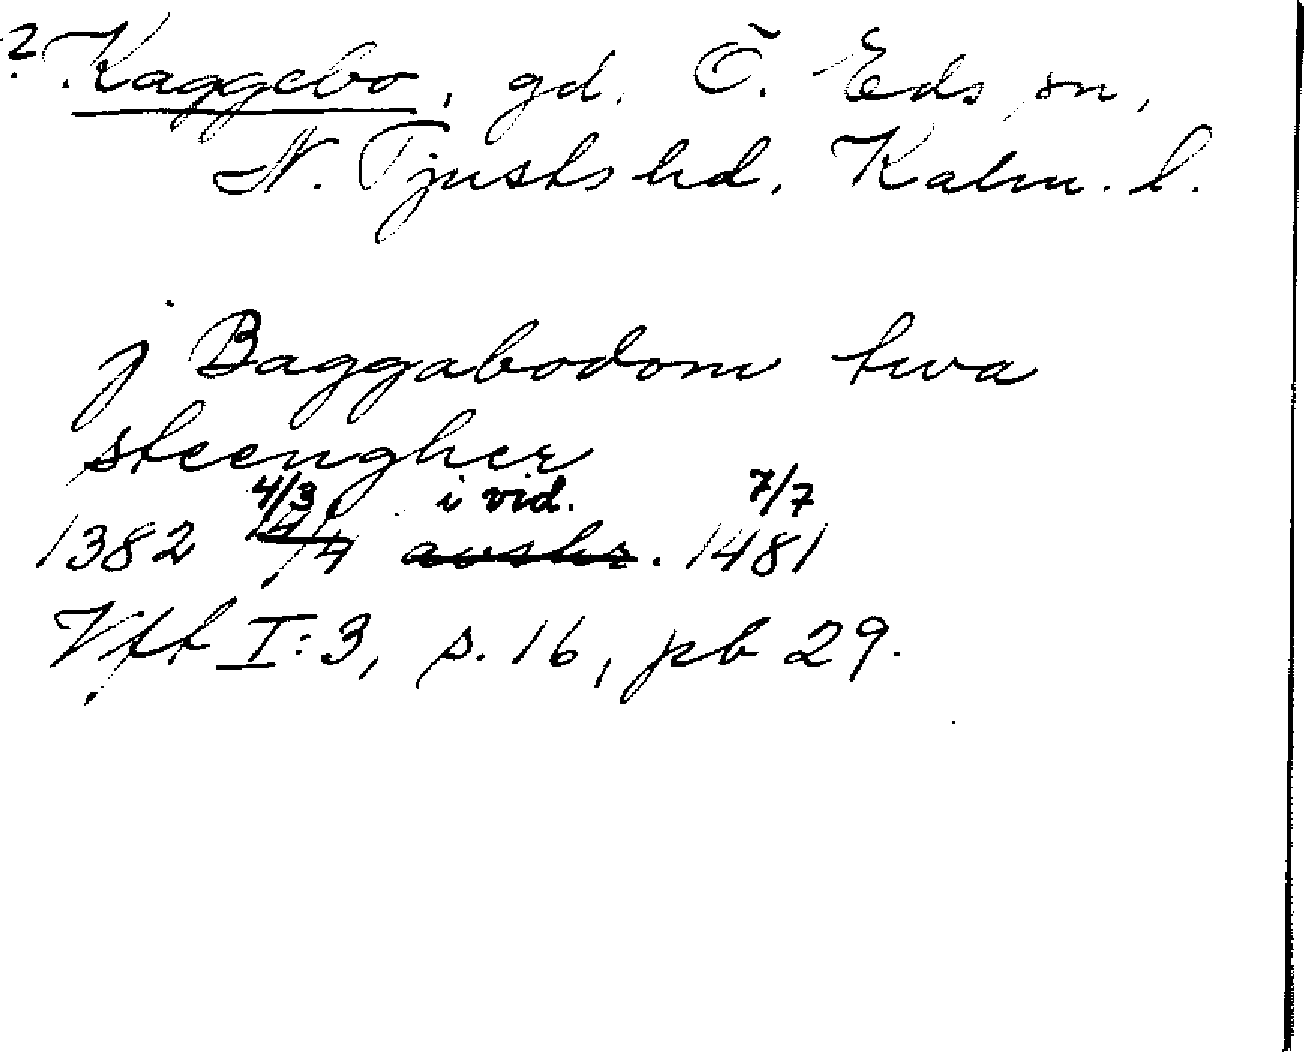 ? Kaggebo, gd. Ö. Eds sn,
N. Tjusts hd. Kalm. l.
j Baggabodom twa
steengher
4/3 i vid. 7/7
1382 avskr. 1481
Vft I:3, s. 16, pb 29.